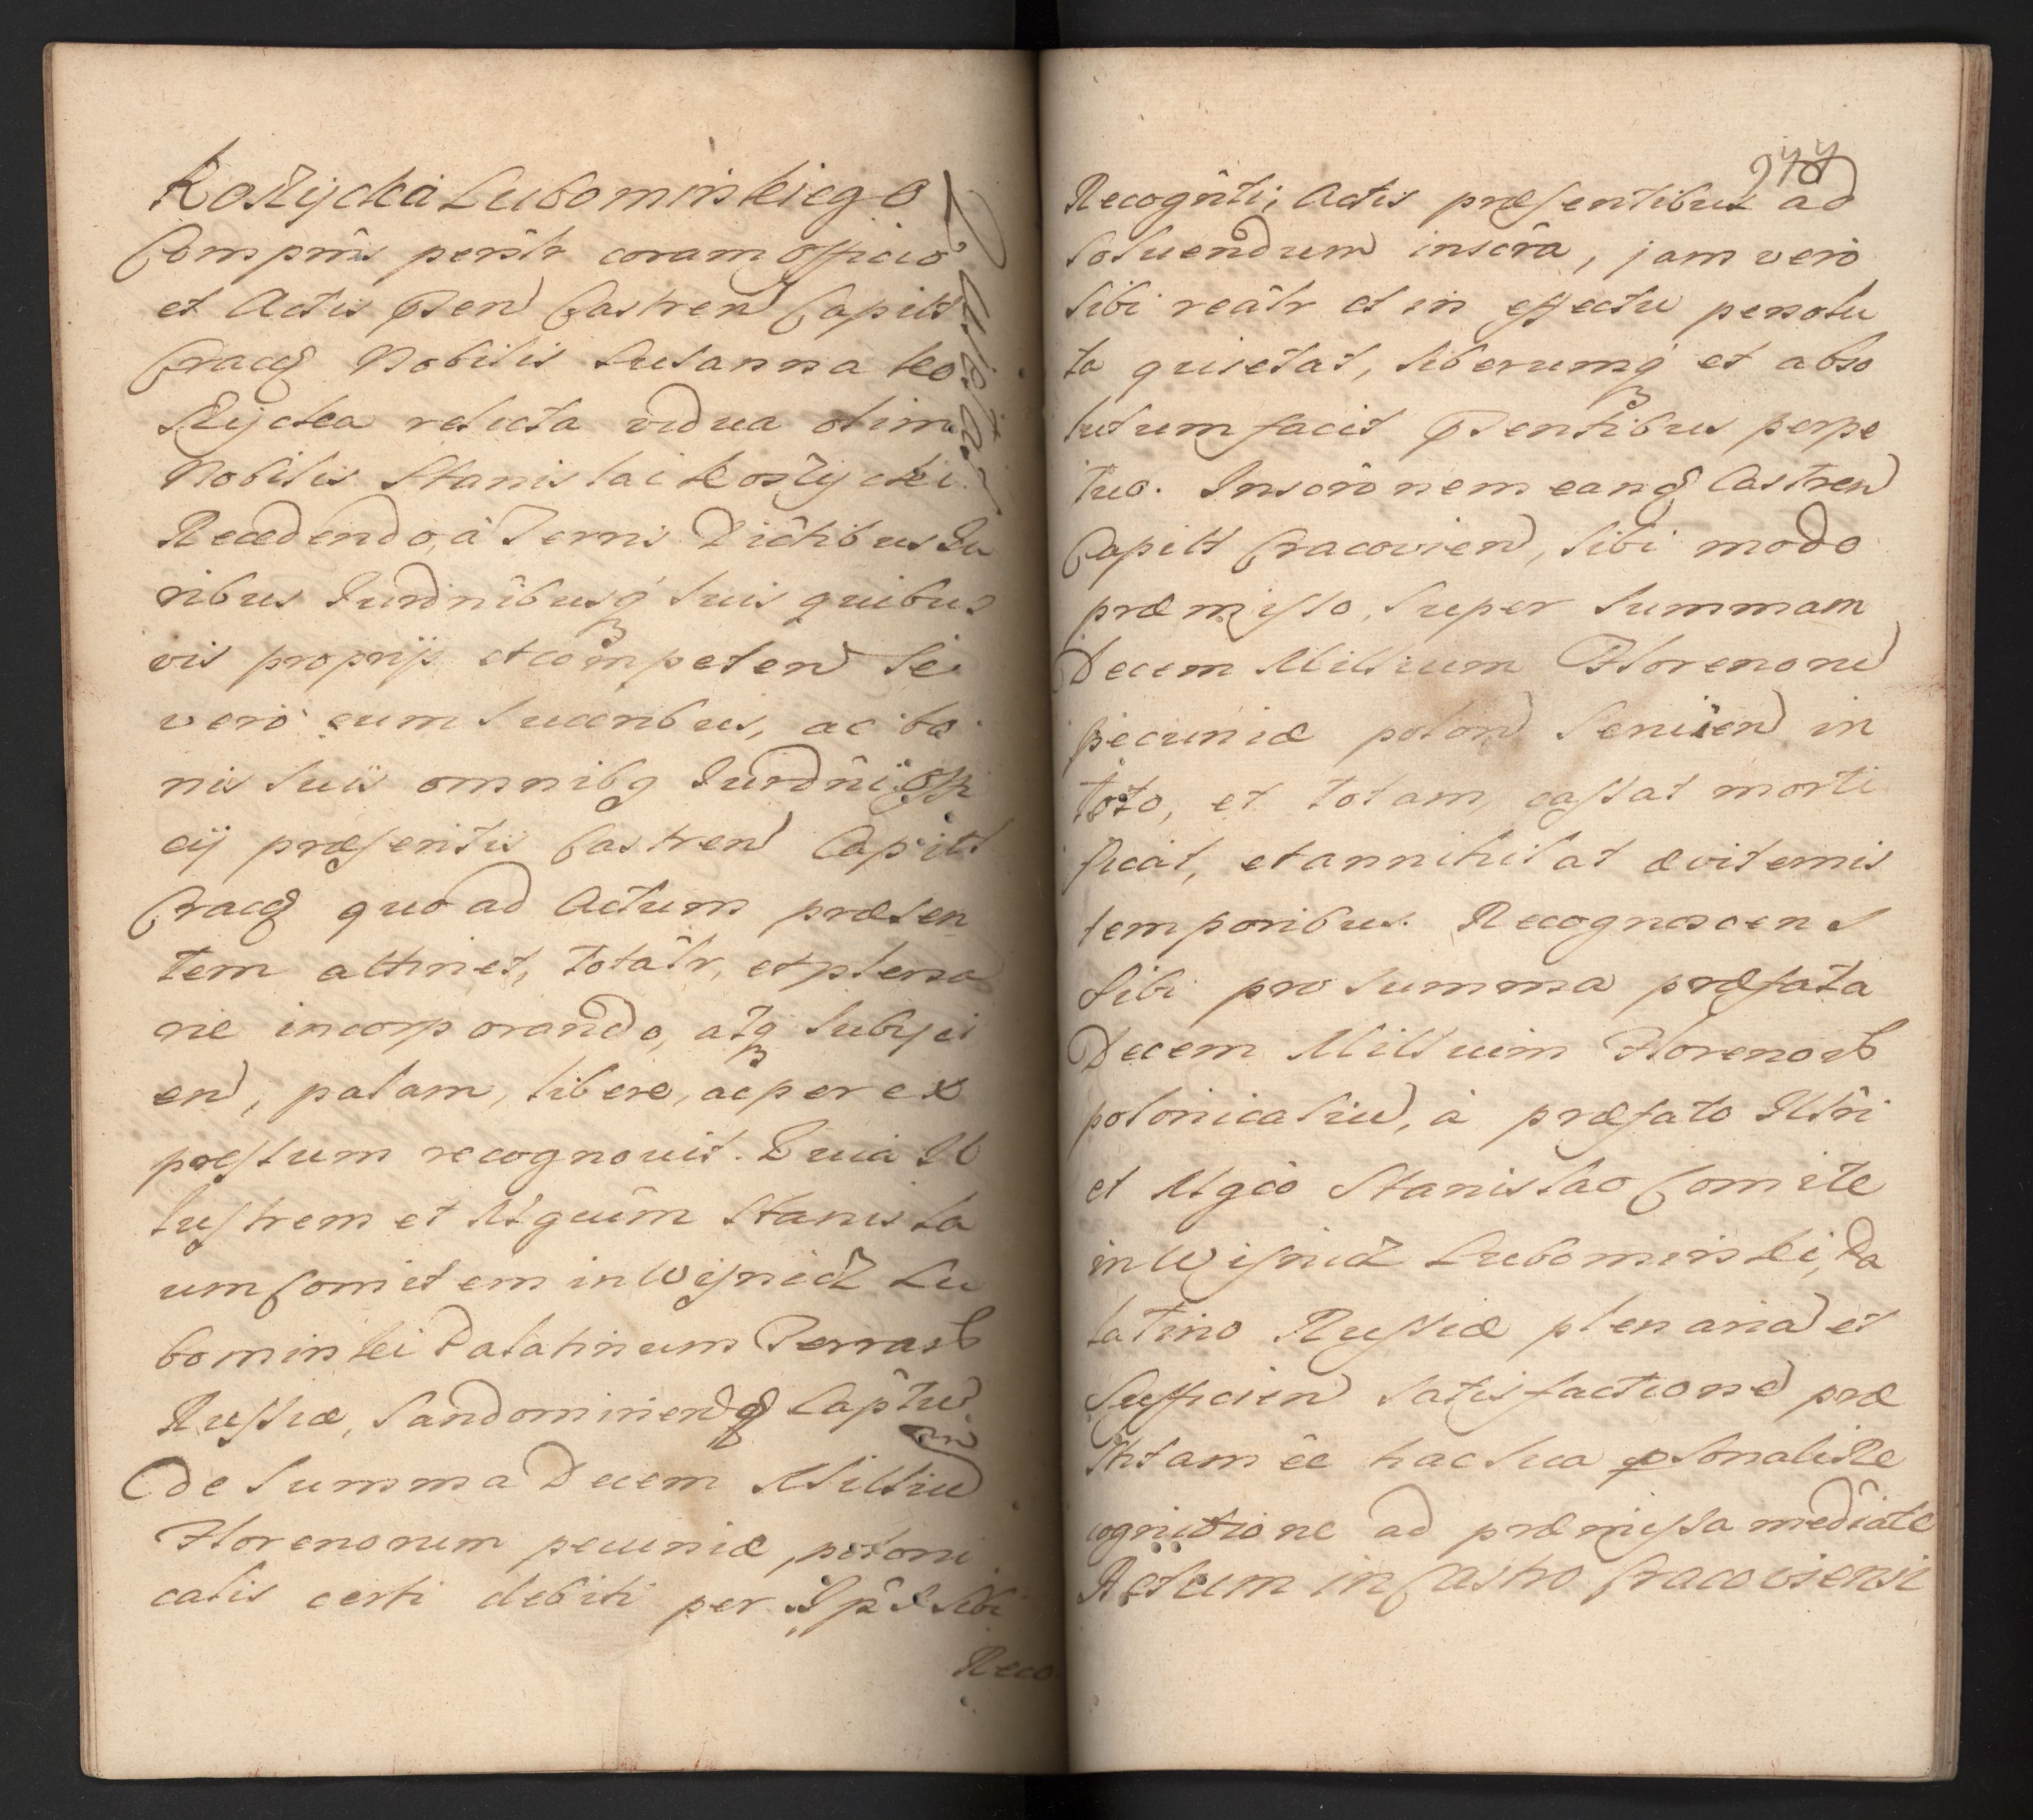 Koszyckа Lubomirskiego
Compnˢ persltr coram Officio
et Actis Pñen Castren Capitt
Cracq Nobilis Susanna Ko
szycka relicta vidua olim
Nobilis Stanislai Koszycki
Recedendo, à Terris Dictibus Iu
ribus Iurdnibusq suis quibus
vis proprijs et competen se
vero cum succribus, ac bo
nis suis omnibq Iurdni Offi
cij præsentis Castren Capitt
Cracq quo ad Actum præsen
tem attinet, totaltr, et plena
rie incorporando, atq subyci
en, palam, libere, ac per ex
pressum recognovit. Quia Il
lustrem et Mgcum Stanisla
um Comitem in Wisnicz Lu
bomirski Palatinum Terrarb
Russiæ, Sandomirienq Captu
Quietat
de summa Decem Milliu
Florenorum pecuniæ, poloni
calis certi debiti per Ip sibi
Reco
244
Recognti; Actis præsentibus ad
solvendum inscra, jam vero
sibi realtr et in effectu persolu
ta quietat, liberumq et abso
lutum facit Pñentibus perpe
tuo. Inscrõnem eanq Castren
Capitt Cracovien, sibi modo
præmisso, super summam
Decem Millium Florenoru
pecuniæ polon servien in
toto, et totam, cassat morti
ficat, et annihilat æviternis
temporibus. Recognoscens
sibi pro summa præfata
Decem Millium Florenorb
polonicaliu, à præfato Illri
et Mgco Stanislao Comite
in Wisnicz Lubomirski, Pa
latino Russiæ plenaria et
sufficien satisfactione præ
stitam eê hac sua psonali Re
cognitione ad præmissa mediate
Actum in Castro Cracoviensi